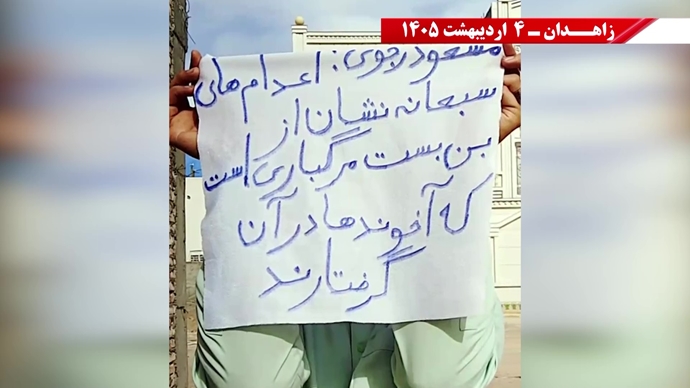 زاهـدان ـ ۴ اردیبهشت ۱۴۰۵
مسعود رجوی: اعدام های
سبعانه نشان از
بن بست مرگباری است
که آخوندها در آن
گرفتارند